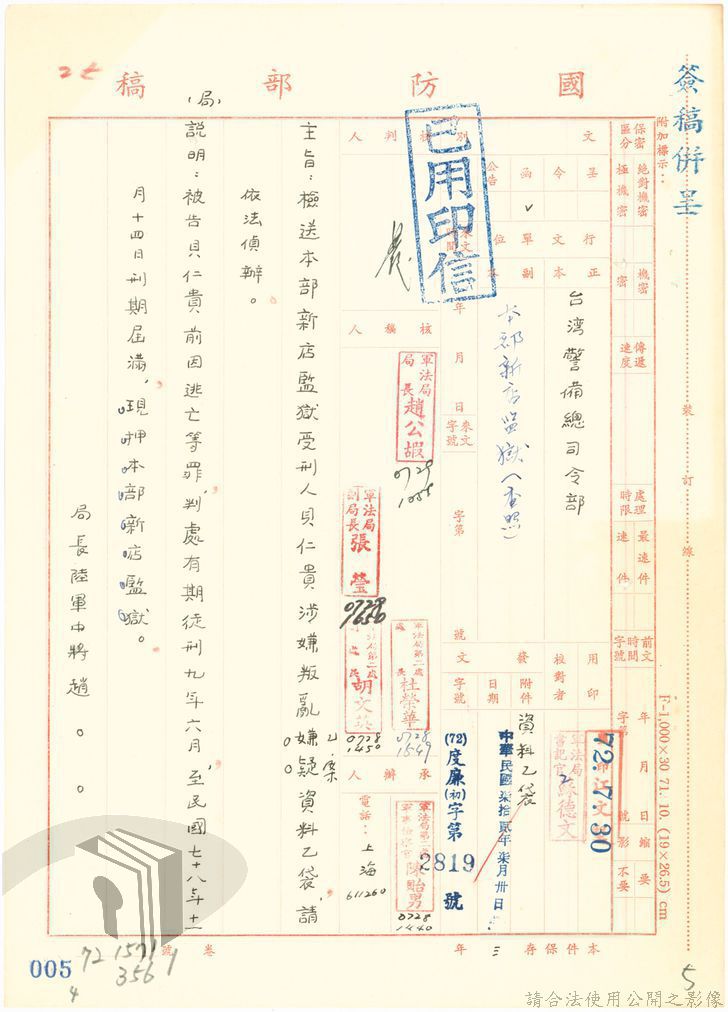 簽稿併呈
國防部稿
(局)
附加標示：
保密區分
絕對機密
極機密
機密
密
傳遞速度
處理時限
最速件
速件
前文時間字號
年 月 日
字第 號
縮影
要
不要
裝訂線
F-1,000×30 71. 10. (19×26.5) cm
文別
呈
令
函
公告
v
行文單位
正本
副本
台灣警備總司令部
本部新店監獄(查照)
來文時間
年 月 日
來文字號
字第 號
用印
校對者
發文
附件
日期
字號
資料乙袋
72.7.30
軍法局書記官 蘇德文
中華民國柒拾貳年柒月卅日
(72)度廉(初)字第 2819 號
已用印信
核判人
核稿人
軍法局局長 趙公嘏
0729
1055
軍法局副局長 張瑩
0728
1650
軍法局第二處處長 杜榮華
0728
1549
胡文英
0728
1450
承辦人
陳貽男
0728
1440
電話：上海
611260
主旨：檢送本部新店監獄受刑人貝仁貴涉嫌叛亂乙案嫌疑資料乙袋，請
依法偵辦。
說明：被告貝仁貴前因逃亡等罪，判處有期徒刑九年六月，至民國七十八年十一
月十四日刑期屆滿，現押本部新店監獄。
局長陸軍中將趙○○
本件保存 三 年
卷 號
005
72 1571
3561
4
5
請合法使用公開之影像